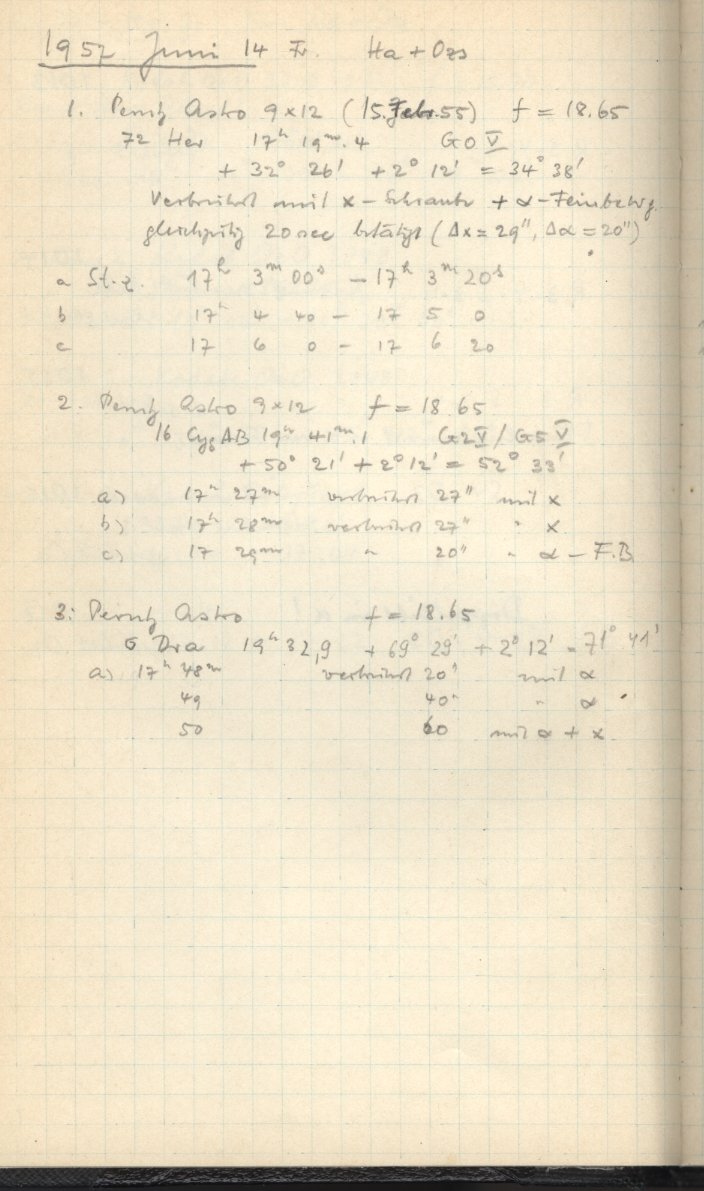 1957 Juni 14 Fr. Ha + Ozs
1. Perutz Astro 9×12 (15. Febr. 55) f = 18.65
72 Her 17ʰ 19ᵐ.4 G0 V
+ 32° 26' + 2° 12' = 34° 38'
Verbreitert mit x-Schraube + α-Feinbewg.
gleichzeitig 20 sec betätigt (Δx = 29", Δα = 20")
a St.z. 17ʰ 3ᵐ 00ˢ – 17ʰ 3ᵐ 20ˢ
b 17ʰ 4 40 – 17 5 0
c 17 6 0 – 17 6 20
2. Perutz Astro 9×12 f = 18.65
16 Cyg AB 19ʰ 41ᵐ.1 G2 V / G5 V
+ 50° 21' + 2° 12' = 52° 33'
a) 17ʰ 27ᵐ verbreitert 27" mit x
b) 17ʰ 28ᵐ verbreitert 27" " x
c) 17 29ᵐ " 20" " α – F.B.
3: Perutz Astro f = 18.65
σ Dra 19ʰ 32,9 + 69° 29' + 2° 12' = 71° 41'
a) 17ʰ 48ᵐ verbreitert 20" mit α
49 40" " α
50 60 mit α + x